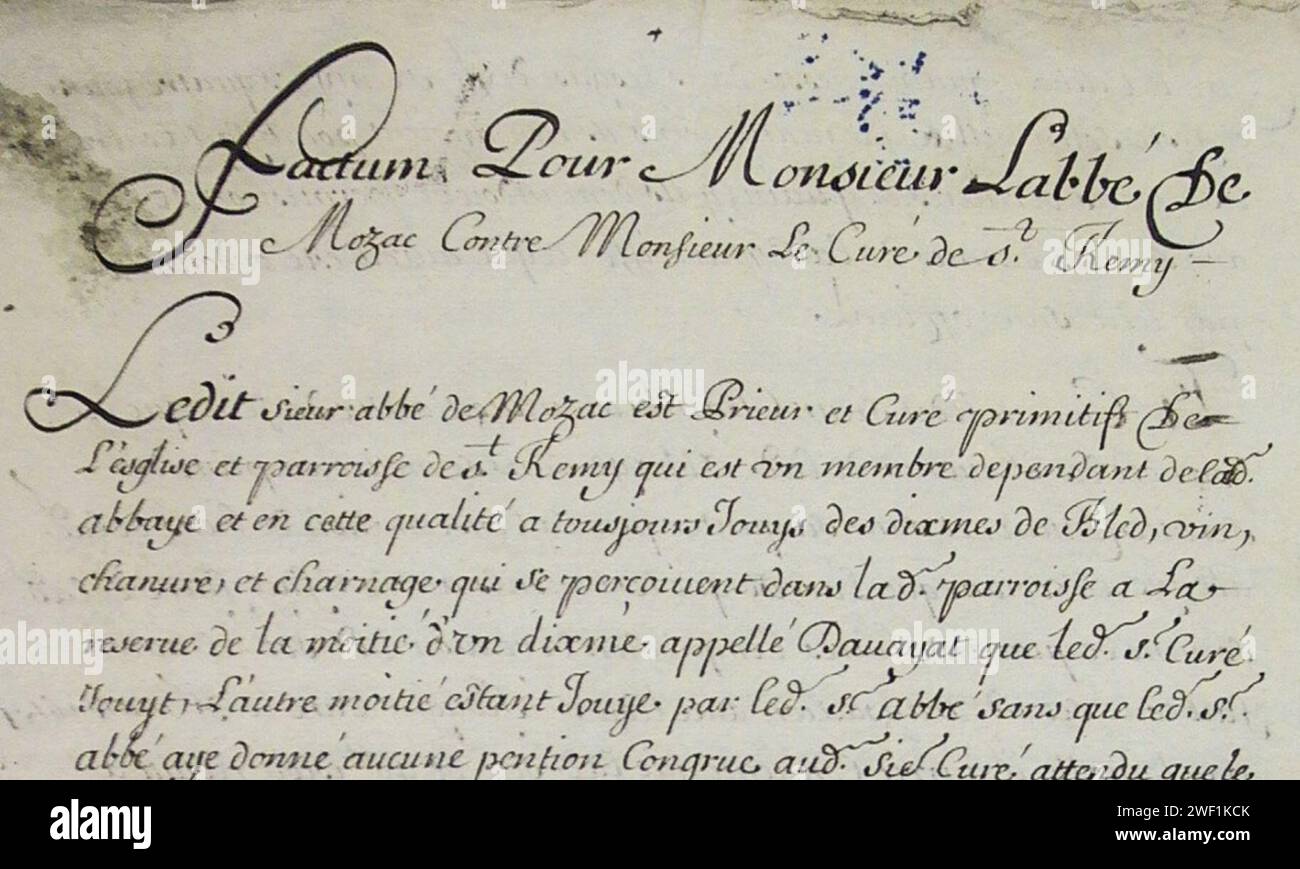 Factum Pour Monsieur Labbé De
Mozac Contre Monsieur Le Curé de s.t Remy
Ledit sieur abbé de Mozac est Prieur et Curé primitif De
L'esglise et parroisse de s.t Remy qui est vn membre dependant de lad.
abbaye et en cette qualité a tousjours Jouys des dixmes de Bled, vin,
chanure, et charnage qui se percoiuent dans la d. parroisse a La
reserue de la moitié d'vn dixme appellé Dauayat que led. s.r Curé
Jouyt, L'autre moitié estant Jouye par led. s.r abbé sans que led. s.r
abbé aye donné aucune pention Congrue aud. sie.r Curé attendu que le
alamy
Image ID: 2WF1KCK
www.alamy.com